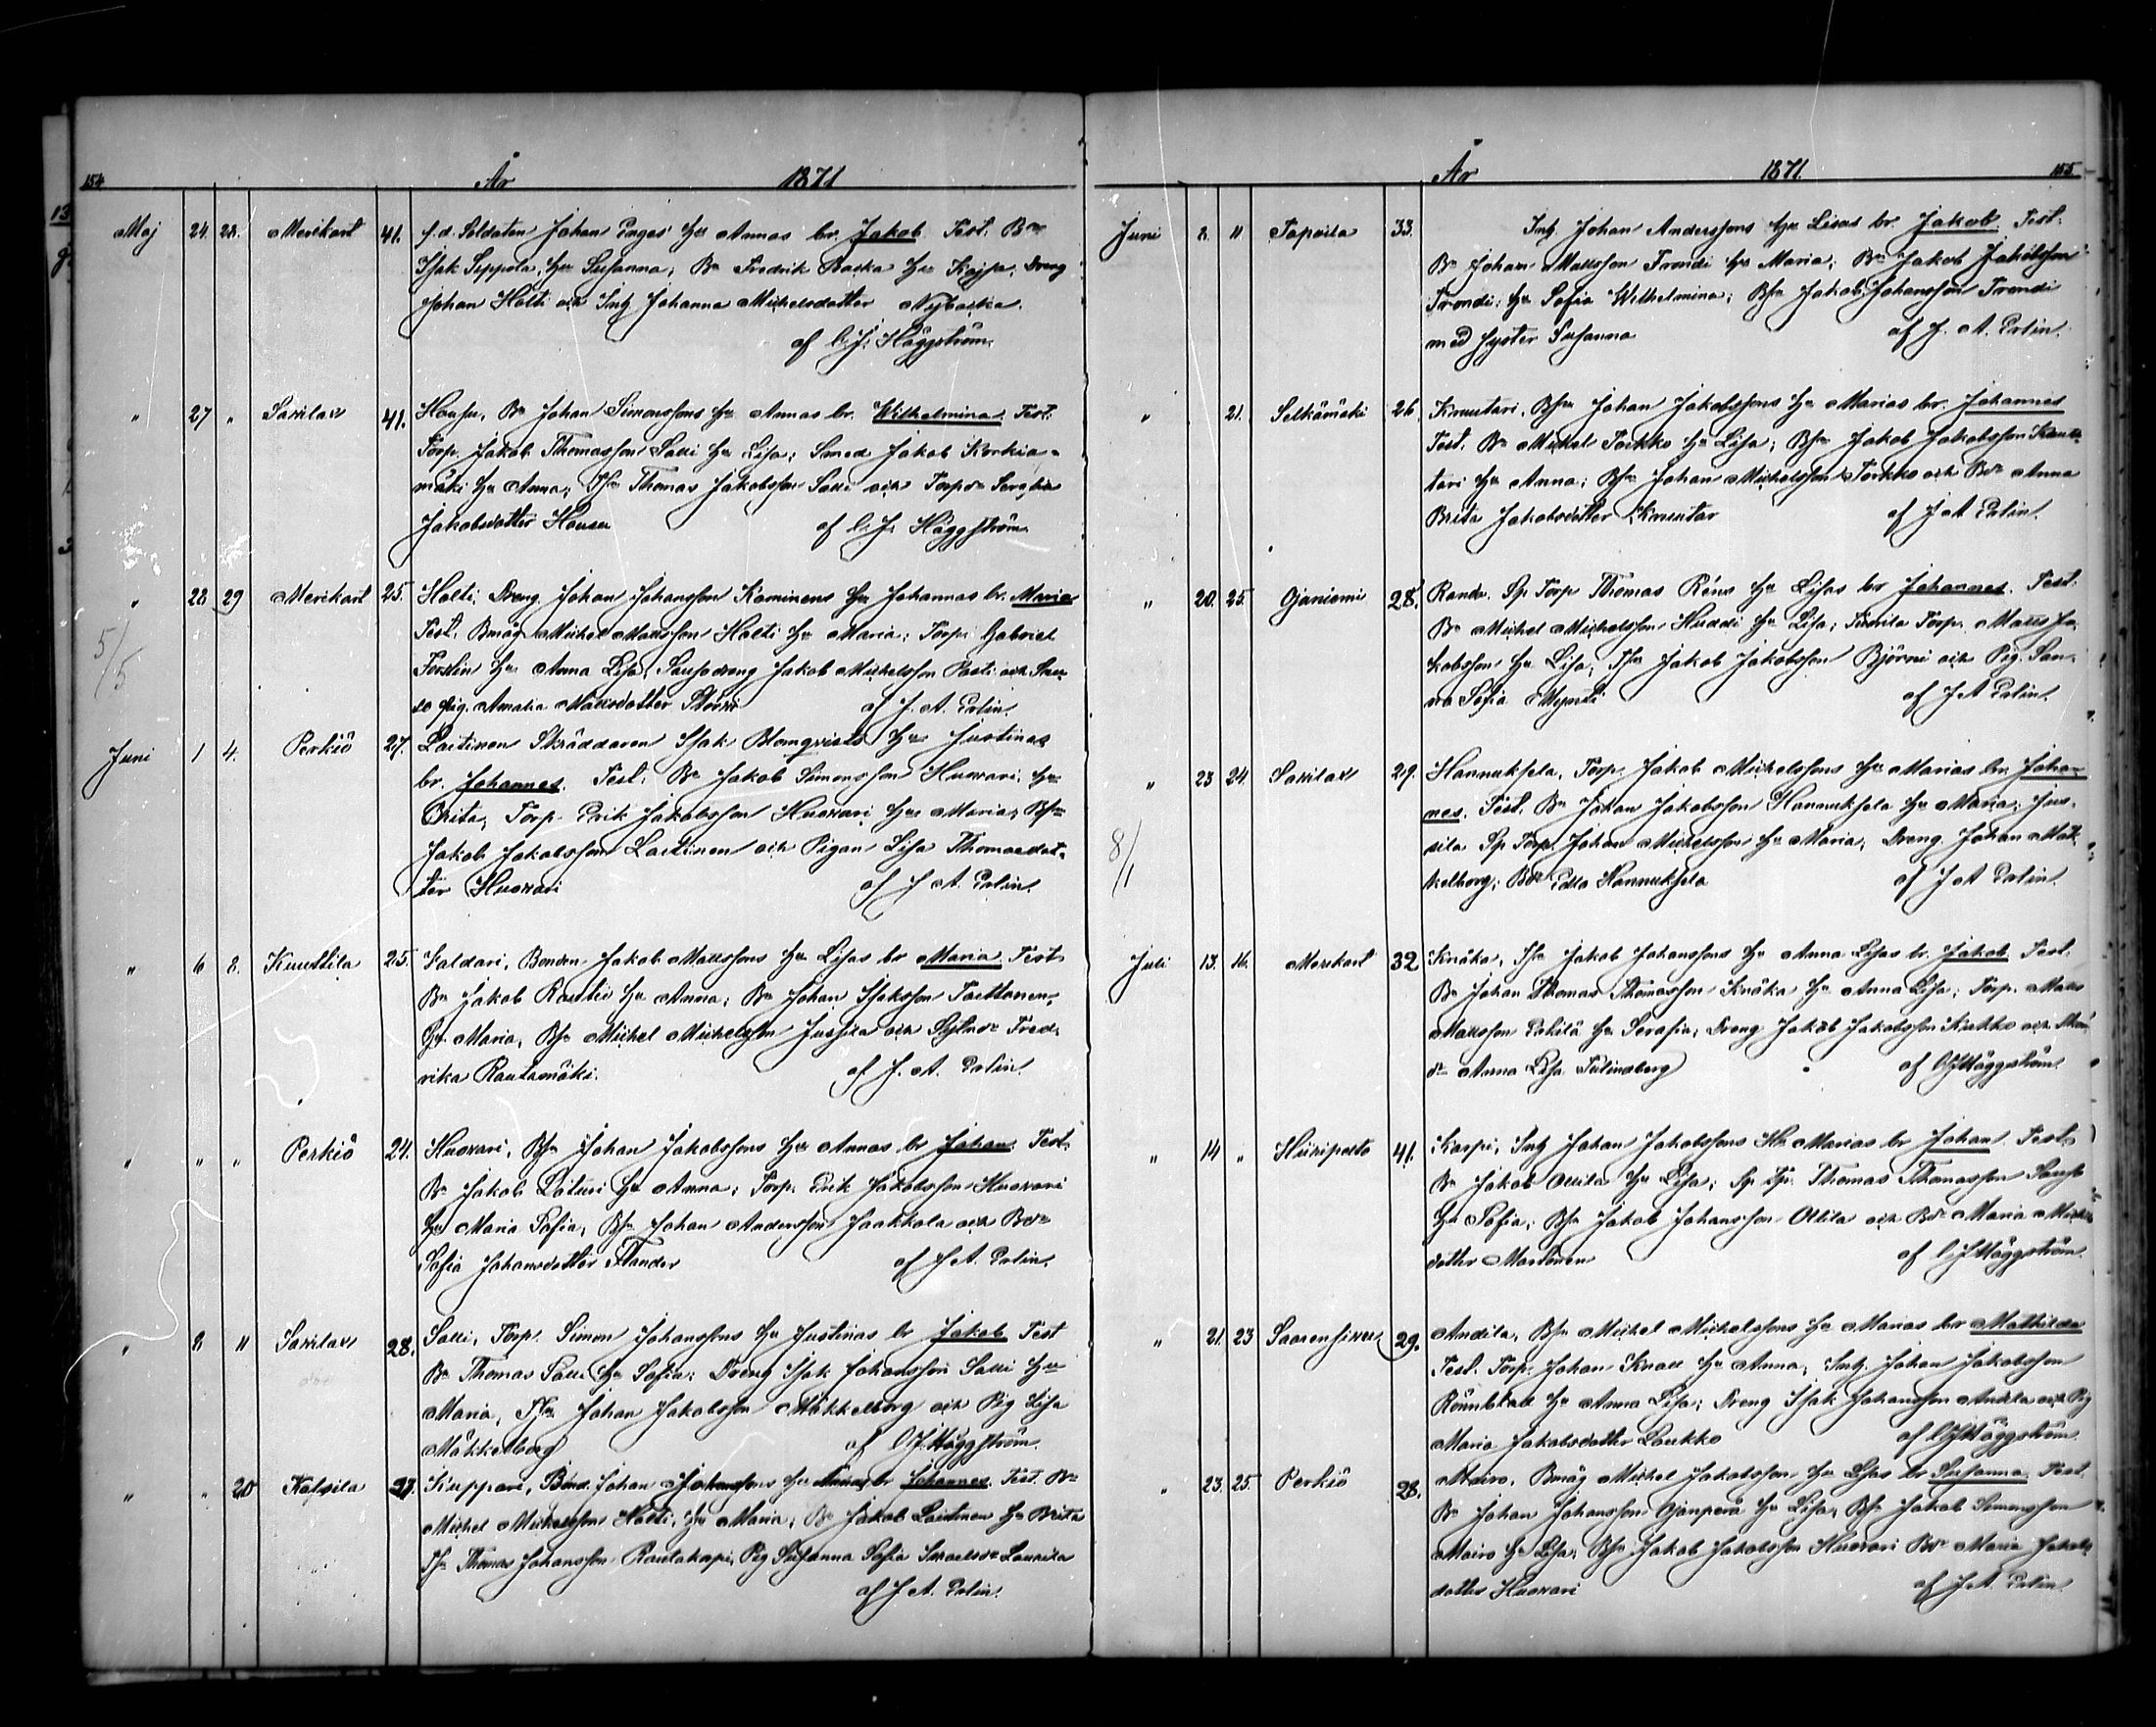 154 År 1871
Maj 24. 28. Merikart 41. f. d. Soldaten Johan Enges Hu Annas br. Jakob. Test. Bn
Isak Seppola, Hu Susanna; Bn Fredrik Backa Hu Kajsa; Dreng
Johan Holti och Inh Johanna Michelsdotter Nybacka.
af C. J. Häggström.
" 27 " Saxilax 41. Houhu, Bn Johan Simonssons Hu Annas br. Wilhelmina. Test.
Torp. Jakob Thomasson Salli Hu Lisa; Smed Jakob Korkia-
mäki Hu Anna; Tsn Thomas Jakobsson Salli och Torpdr Serafia
Jakobsdotter Houhu af C. J. Häggström
" 28 29 Merikart 25. Holti; Dreng Johan Johansson Kominens Hu Johannas br. Maria
Test. Bmåg Michel Mattsson Holti Hu Maria; Torp. Gabriel
Forslin Hu Anna Lisa, Dreng Jakob Michelsson Posti och
pig. Amalia Mattsdotter af J. A. Polin.
5/5
Juni 1 4. Perkiö 27. Laitinen Skräddaren Isak Blomqvists Hu Justinas
br. Johannes. Test. Bn Jakob Simonsson Huovari, Hu
Brita; Torp. Erik Jakobsson Huovari Hu Maria; Bsn
Jakob Jakobsson Laitinen och Pigan Lisa Thomasdot-
ter Huovari af J. A. Polin.
" 6 8. Kuuttila 25. Faldari, Bonden Jakob Mattssons Hu Lisas br Maria. Test.
Bn Jakob Rautio Hu Anna; Bn Johan Isaksson Torttonen
Hu Maria, Bsn Michel Michelsson Jussila och Fred-
rika Rautamäki. af J. A. Polin.
" " " Perkiö 24. Huovari, Bsn Johan Jakobssons Hu Annas br Johan. Test.
Bn Jakob Laituri Hu Anna; Torp. Erik Jakobsson Huovari
Hu Maria Sofia, Bsn Johan Andersson Jaakkola och Bdr
Sofia Johansdotter Flander af J. A. Polin.
" 8 11 Saxilax 28. Salli, Torp. Simon Johanssons Hu Justinas br Jakob. Test
Bn Thomas Salli Hu Sofia; Dreng Isak Johansson Salli Hu
Maria, Tsn Johan Jakobsson Mäkkelborg och Pig Lisa
Mäkkelborg af C J Häggström.
" " 20 Kafsila 27. Kuppari, Bond. Johan Johanssons Hu Annas br Johannes. Test. Bn
Michel Michelsson Holti, Hu Maria; Bn Jakob Laitinen Hu Brita
Tsn Thomas Johansson Rautakapi, Pig Susanna Sofia Israelsdr Laurila
af J. A. Polin.
År 1871. 155
Juni 8. 11 Topoila 33. Inh Johan Anderssons Hu Lisas br. Jakob. Test.
Bn Johan Mattsson Trondi Hu Maria; Bn Jakob Jakobsson
Trondi; Hu Sofia Wilhelmina; Bsn Jakob Johansson Trondi
med syster Susanna af J. A. Polin.
" 21. Selkämäki 26. Knuutari, Bsn Johan Jakobssons Hu Marias br. Johannes
Test. Bn Michel Torkko Hu Lisa; Bsn Jakob Jakobsson Knuu-
tari Hu Anna; Bsn Johan Michelsson Torkko och Bdr Anna
Brita Jakobsdotter Knuutar af J A Polin.
" 20. 25. Ojaniemi 28. Sp Torp Thomas Hu Lisas br Johannes. Test.
Bn Michel Michelsson Huddi Hu Lisa; Torp. Matts Ja-
kobsson Hu Lisa; Tsn Jakob Jakobsson Björni och Pig. San-
na Sofia af J A Polin.
" 23 24. Saxilax 29. Hannuksela, Torp. Jakob Michelssons Hu Marias br. Johan-
nes. Test. Bn Johan Jakobsson Hannuksela Hu Maria; Jus-
sila Sp Torp. Johan Michelsson Hu Maria; Dreng Johan Mäk-
kelborg; Bdr Edla Hannuksela af J A Polin.
8/1
Juli 13. 16. Merikart 32 Knåka, Tsn Jakob Johanssons Hu Anna Lisas br. Jakob. Test.
Bn Johan Thomas Thomasson Knåka Hu Anna Lisa; Torp. Matts
Mattsson Hu Serafia; Dreng Jakob Jakobsson och
dr Anna Lisa Tulinsberg af C J Häggström.
" 14 " Hiiripelto 41. Karpi, Inh Johan Jakobssons Hu Marias br Johan. Test.
Bn Jakob Ollila Hu Lisa; Sp Tp. Thomas Thomasson
Hu Sofia; Bsn Jakob Johansson Ollila och Bdr Maria
dotter Martonen af C J Häggström.
" 21. 23 Saarensivu 29. Andila, Bsn Michel Michelssons Hu Marias br Mathilda
Test. Torp. Johan Knall Hu Anna; Inh. Johan Jakobsson
Rönnblad Hu Anna Lisa; Dreng Isak Johansson Andila och Pig
Maria Jakobsdotter Loukko af C J Häggström.
" 23. 25. Perkiö 28. Mairo, Bmåg Michel Jakobsson Hu Lisas br Susanna. Test.
Bn Johan Johansson Ojanperä Hu Lisa; Bsn Jakob Simonsson
Mairo Hu Lisa; Bsn Jakob Jakobsson Huovari Bdr Maria Jakobs
dotter Huovari af J A. Polin.